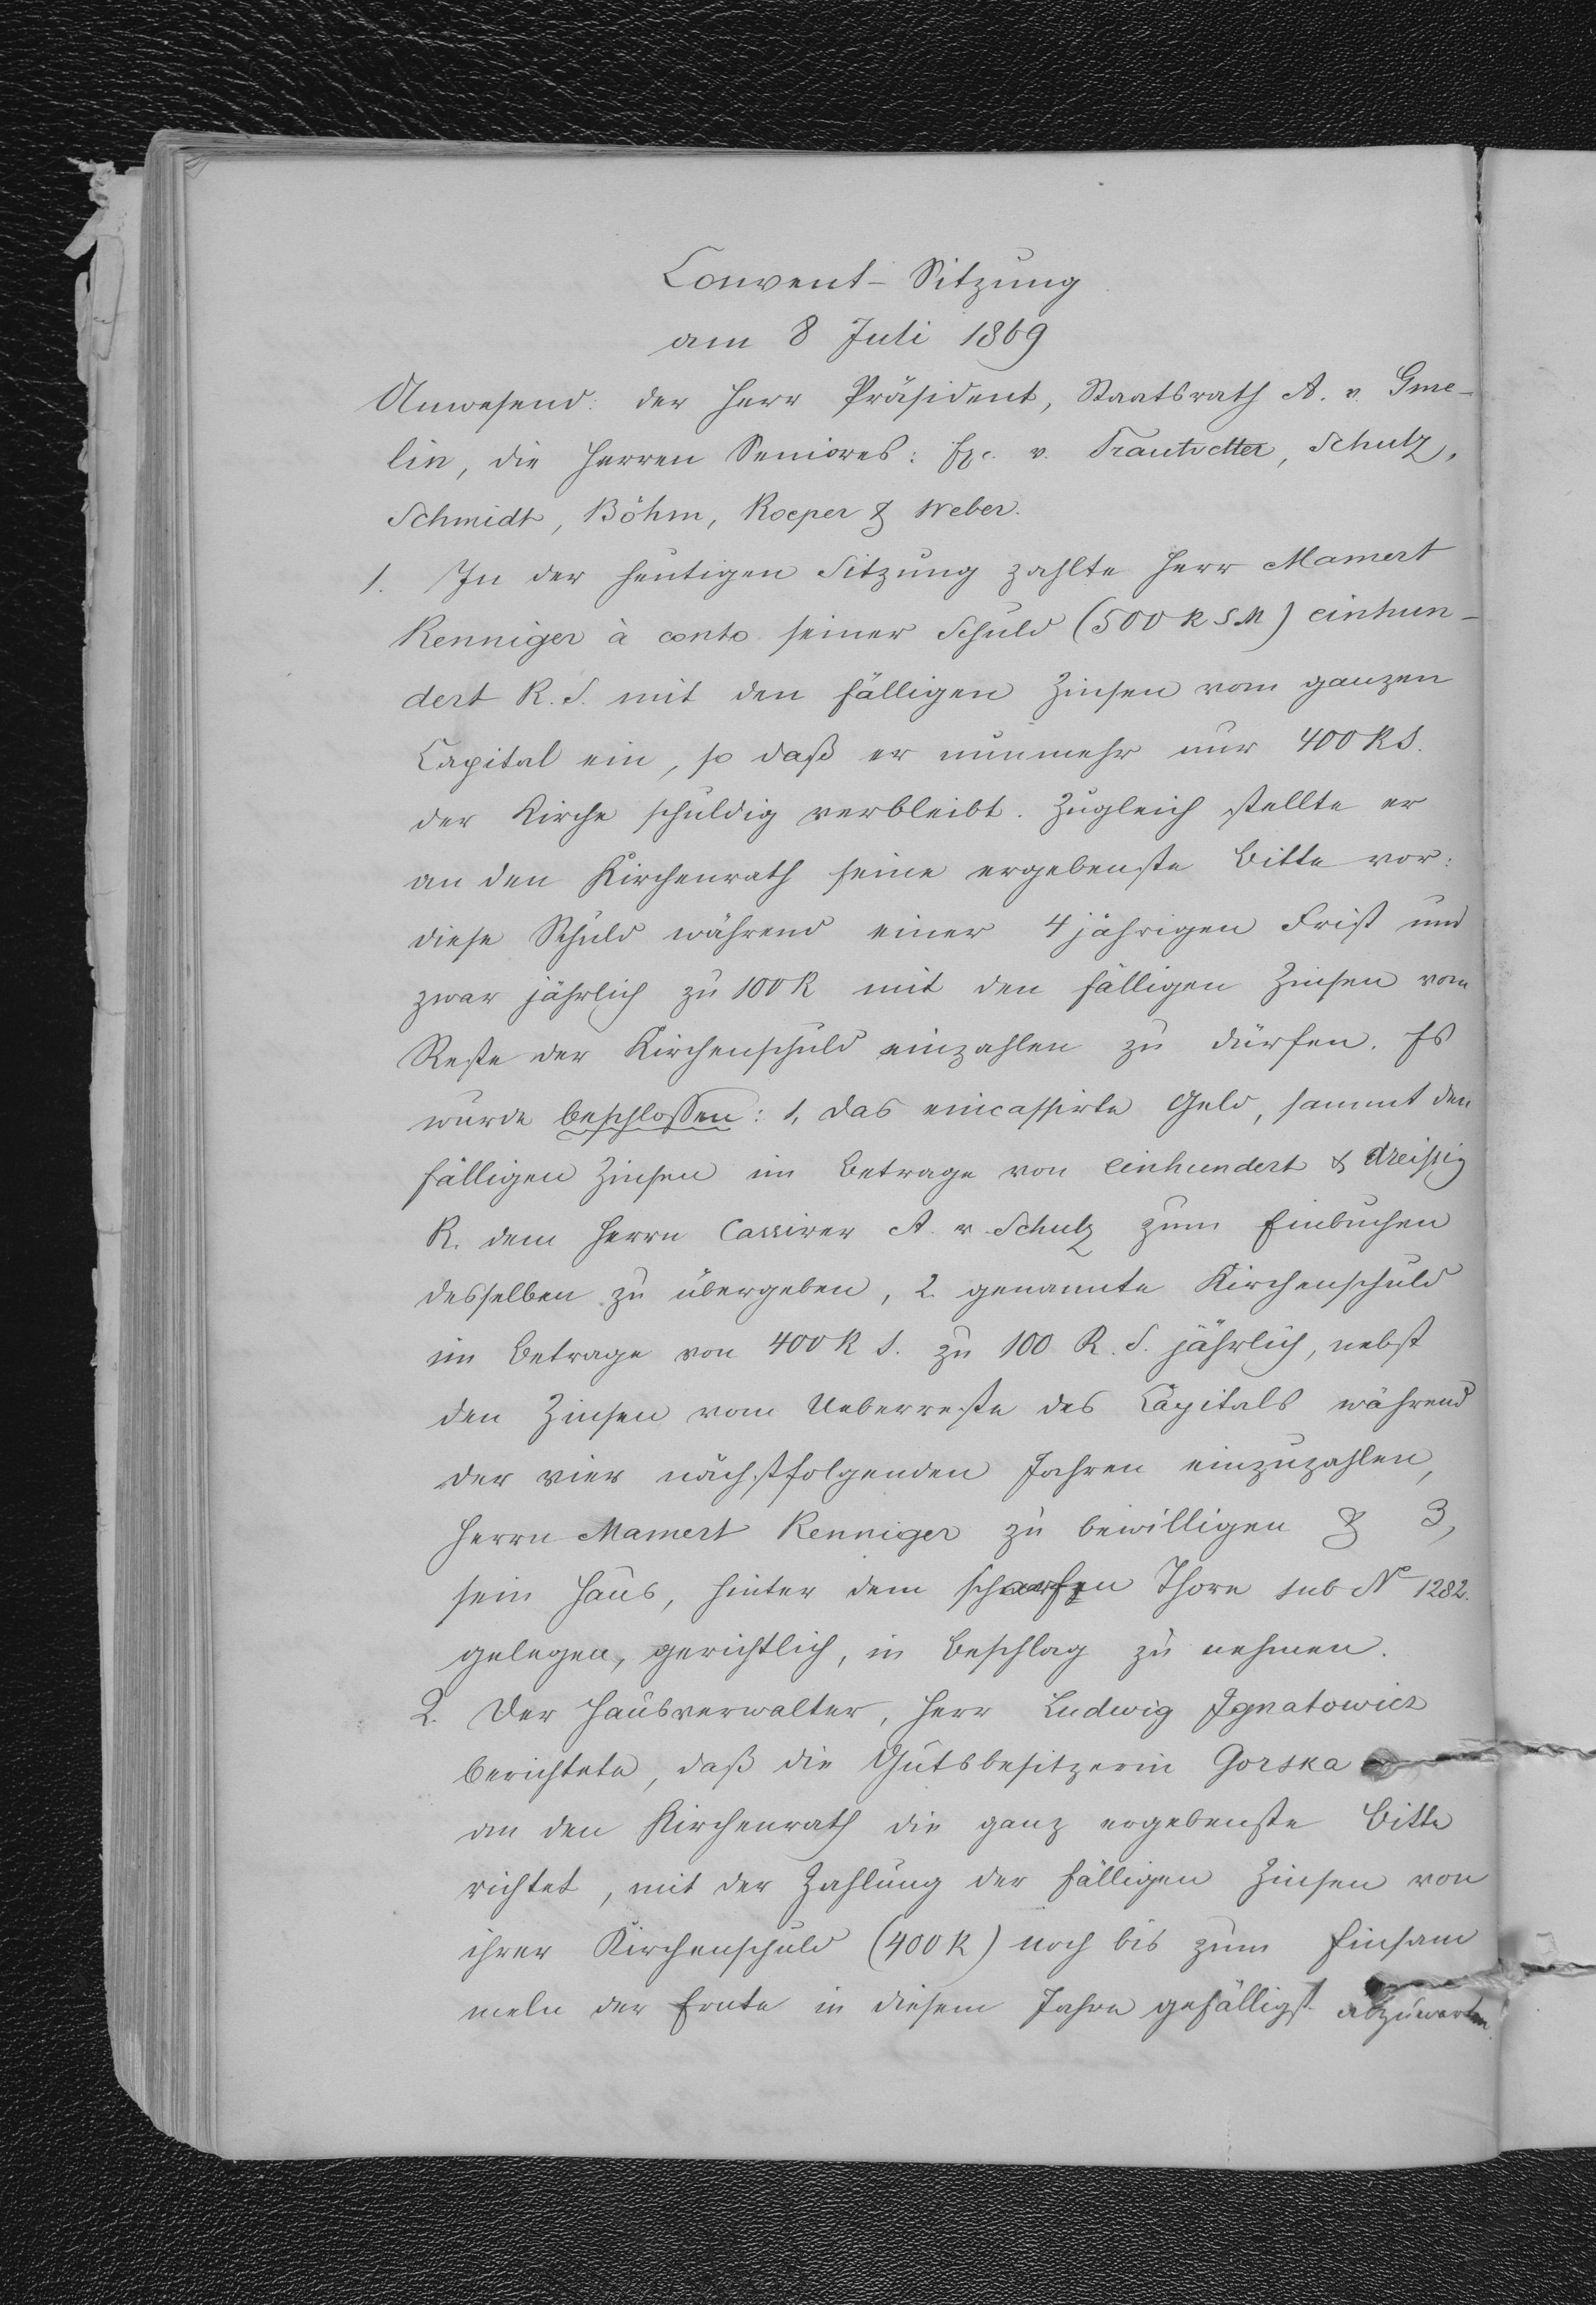 Convent-Sitzung
am 8 Juli 1869
Anwesend: der Herr Präsident, Staatsrath A. v. Gme-
lin, die Herren Seniores: Exc. v. Trautvetter, Schulz,
Schmidt, Böhm, Roeper & Weber.
1. In der heutigen Sitzung zahlte Herr Mamert
Renniger à conto seiner Schuld (500 R S M) einhun-
dert R. S. mit den fälligen Zinsen vom ganzen
Capital ein, so daß er nunmehr nur 400 R S.
der Kirche schuldig verbleibt. Zugleich stellte er
an den Kirchenrath seine ergebenste Bitte vor:
diese Schuld während einer 4 jährigen Frist und
zwar jährlich zu 100 R mit den fälligen Zinsen vom
Reste der Kirchenschuld einzahlen zu dürfen. Es
wurde beschlossen: 1, das eincassirte Geld, sammt den
fälligen Zinsen im Betrage von einhundert & dreißig
R. dem Herrn Cassirer A. v. Schulz zum Einbuchen
desselben zu übergeben, 2. genannte Kirchenschuld
im Betrage von 400 R S. zu 100 R. S. jährlich, nebst
den Zinsen vom Ueberreste des Capitals während
der vier nächstfolgenden Jahren einzuzahlen,
Herrn Mamert Renniger zu bewilligen & 3,
sein Haus, hinter dem scharfen Thore sub No 1282.
gelegen, gerichtlich, in Beschlag zu nehmen.
2. Der Hausverwalter, Herr Ludwig Ignatowicz
berichtete, daß die Gutsbesitzerin Gorska
an den Kirchenrath die ganz ergebenste Bitte
richtet, mit der Zahlung der fälligen Zinsen von
ihrer Kirchenschuld (400 R) noch bis zum Einsam
meln der Ernte in diesem Jahre gefälligst abzuwarten.